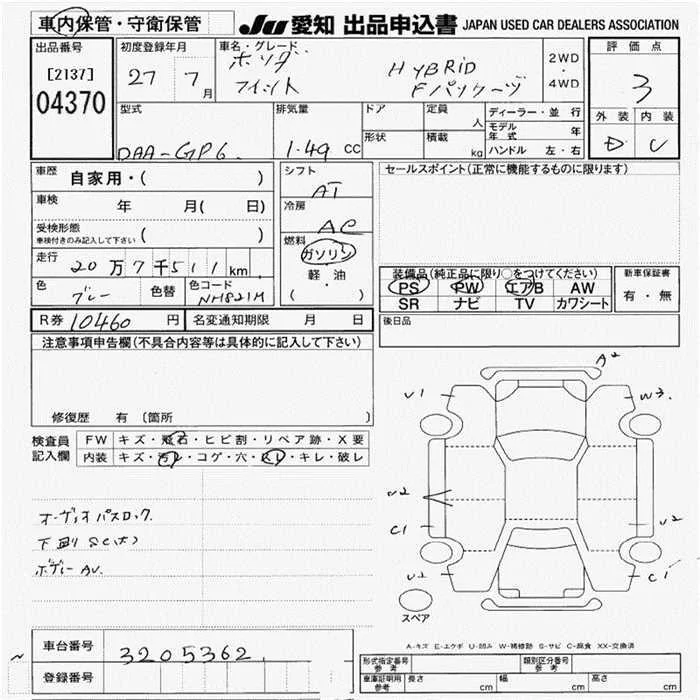 車内保管・守衛保管
JU 愛知 出品申込書 JAPAN USED CAR DEALERS ASSOCIATION
出品番号
[2137]
04370
初度登録年月
27 7月
車名・グレード
ホンダ
フィット
HYBRID
Fパッケージ
2WD
・
4WD
評価点
3
外装 内装
D C
型式
DAA-GP6.
排気量
1.49 cc
ドア
形状
定員 人
積載 kg
ディーラー・並行
モデル年式 年
ハンドル 左・右
車歴
自家用・( )
車検
年 月( 日)
受検形態
車検付きのみ記入して下さい ( )
走行
20万7千511km
色
グレー
色替
色コード
NH821M
シフト
AT
冷房
AC
燃料
ガソリン
軽・油
( ・ )
セールスポイント(正常に機能するものに限ります)
装備品(純正品に限り○をつけてください)
PS PW エアB AW
SR ナビ TV カワシート
新車保証書
有・無
R券 10460 円
名変通知期限 月 日
後日品
注意事項申告欄(不具合内容等は具体的に記入して下さい)
修復歴 有 〔箇所
検査員
記入欄
FW キズ・飛石・ヒビ割・リペア跡・X要
内装 キズ・汚レ・コゲ・穴・スレ・キレ・破レ
オーディオパスロック.
下廻りSC(大)
ボデーAU.
A2
U1
W3.
C1
U2
U2
C1
スペア
A-キズ E-エクボ U-凹み W-補修跡 S-サビ C-腐食 XX-交換済
車台番号
3205362
登録番号
形式指定番号
参考
類別区分番号
参考
車庫証明用
参考
長さ cm
幅 cm
高さ cm